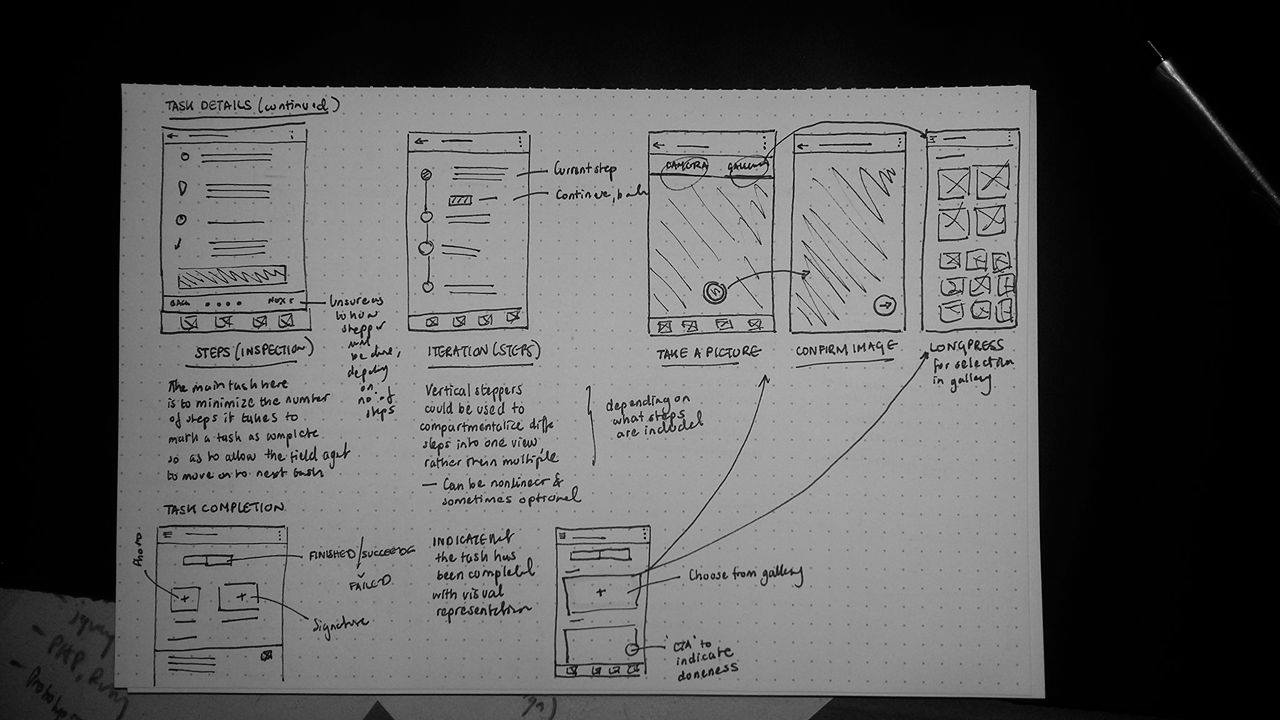 TASK DETAILS (continued)
BACK
NEXT
Unsure as
to how
stepper
will
be done,
depending
on
no. of
steps
STEPS (INSPECTION)
The main task here
is to minimize the number
of steps it takes to
mark a task as complete
so as to allow the field agent
to move on to next task
Current step
Continue, back
ITERATION (STEPS)
Vertical steppers
could be used to
compartmentalize diff
steps into one view
rather than multiple
— Can be nonlinear &
sometimes optional
depending on
what steps
are included
CAMERA
GALLERY
TAKE A PICTURE
CONFIRM IMAGE
LONGPRESS
for selection
in gallery
TASK COMPLETION
Photo
FINISHED/SUCCEEDED
FAILED
Signature
INDICATE that
the task has
been completed
with visual
representation
Choose from gallery
'CTA' to
indicate
doneness
- PHP, Ruby